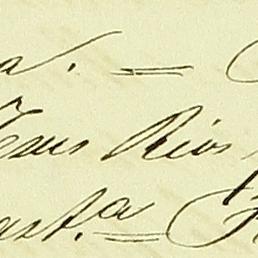 a. =
Jesus Rios
ast.a =